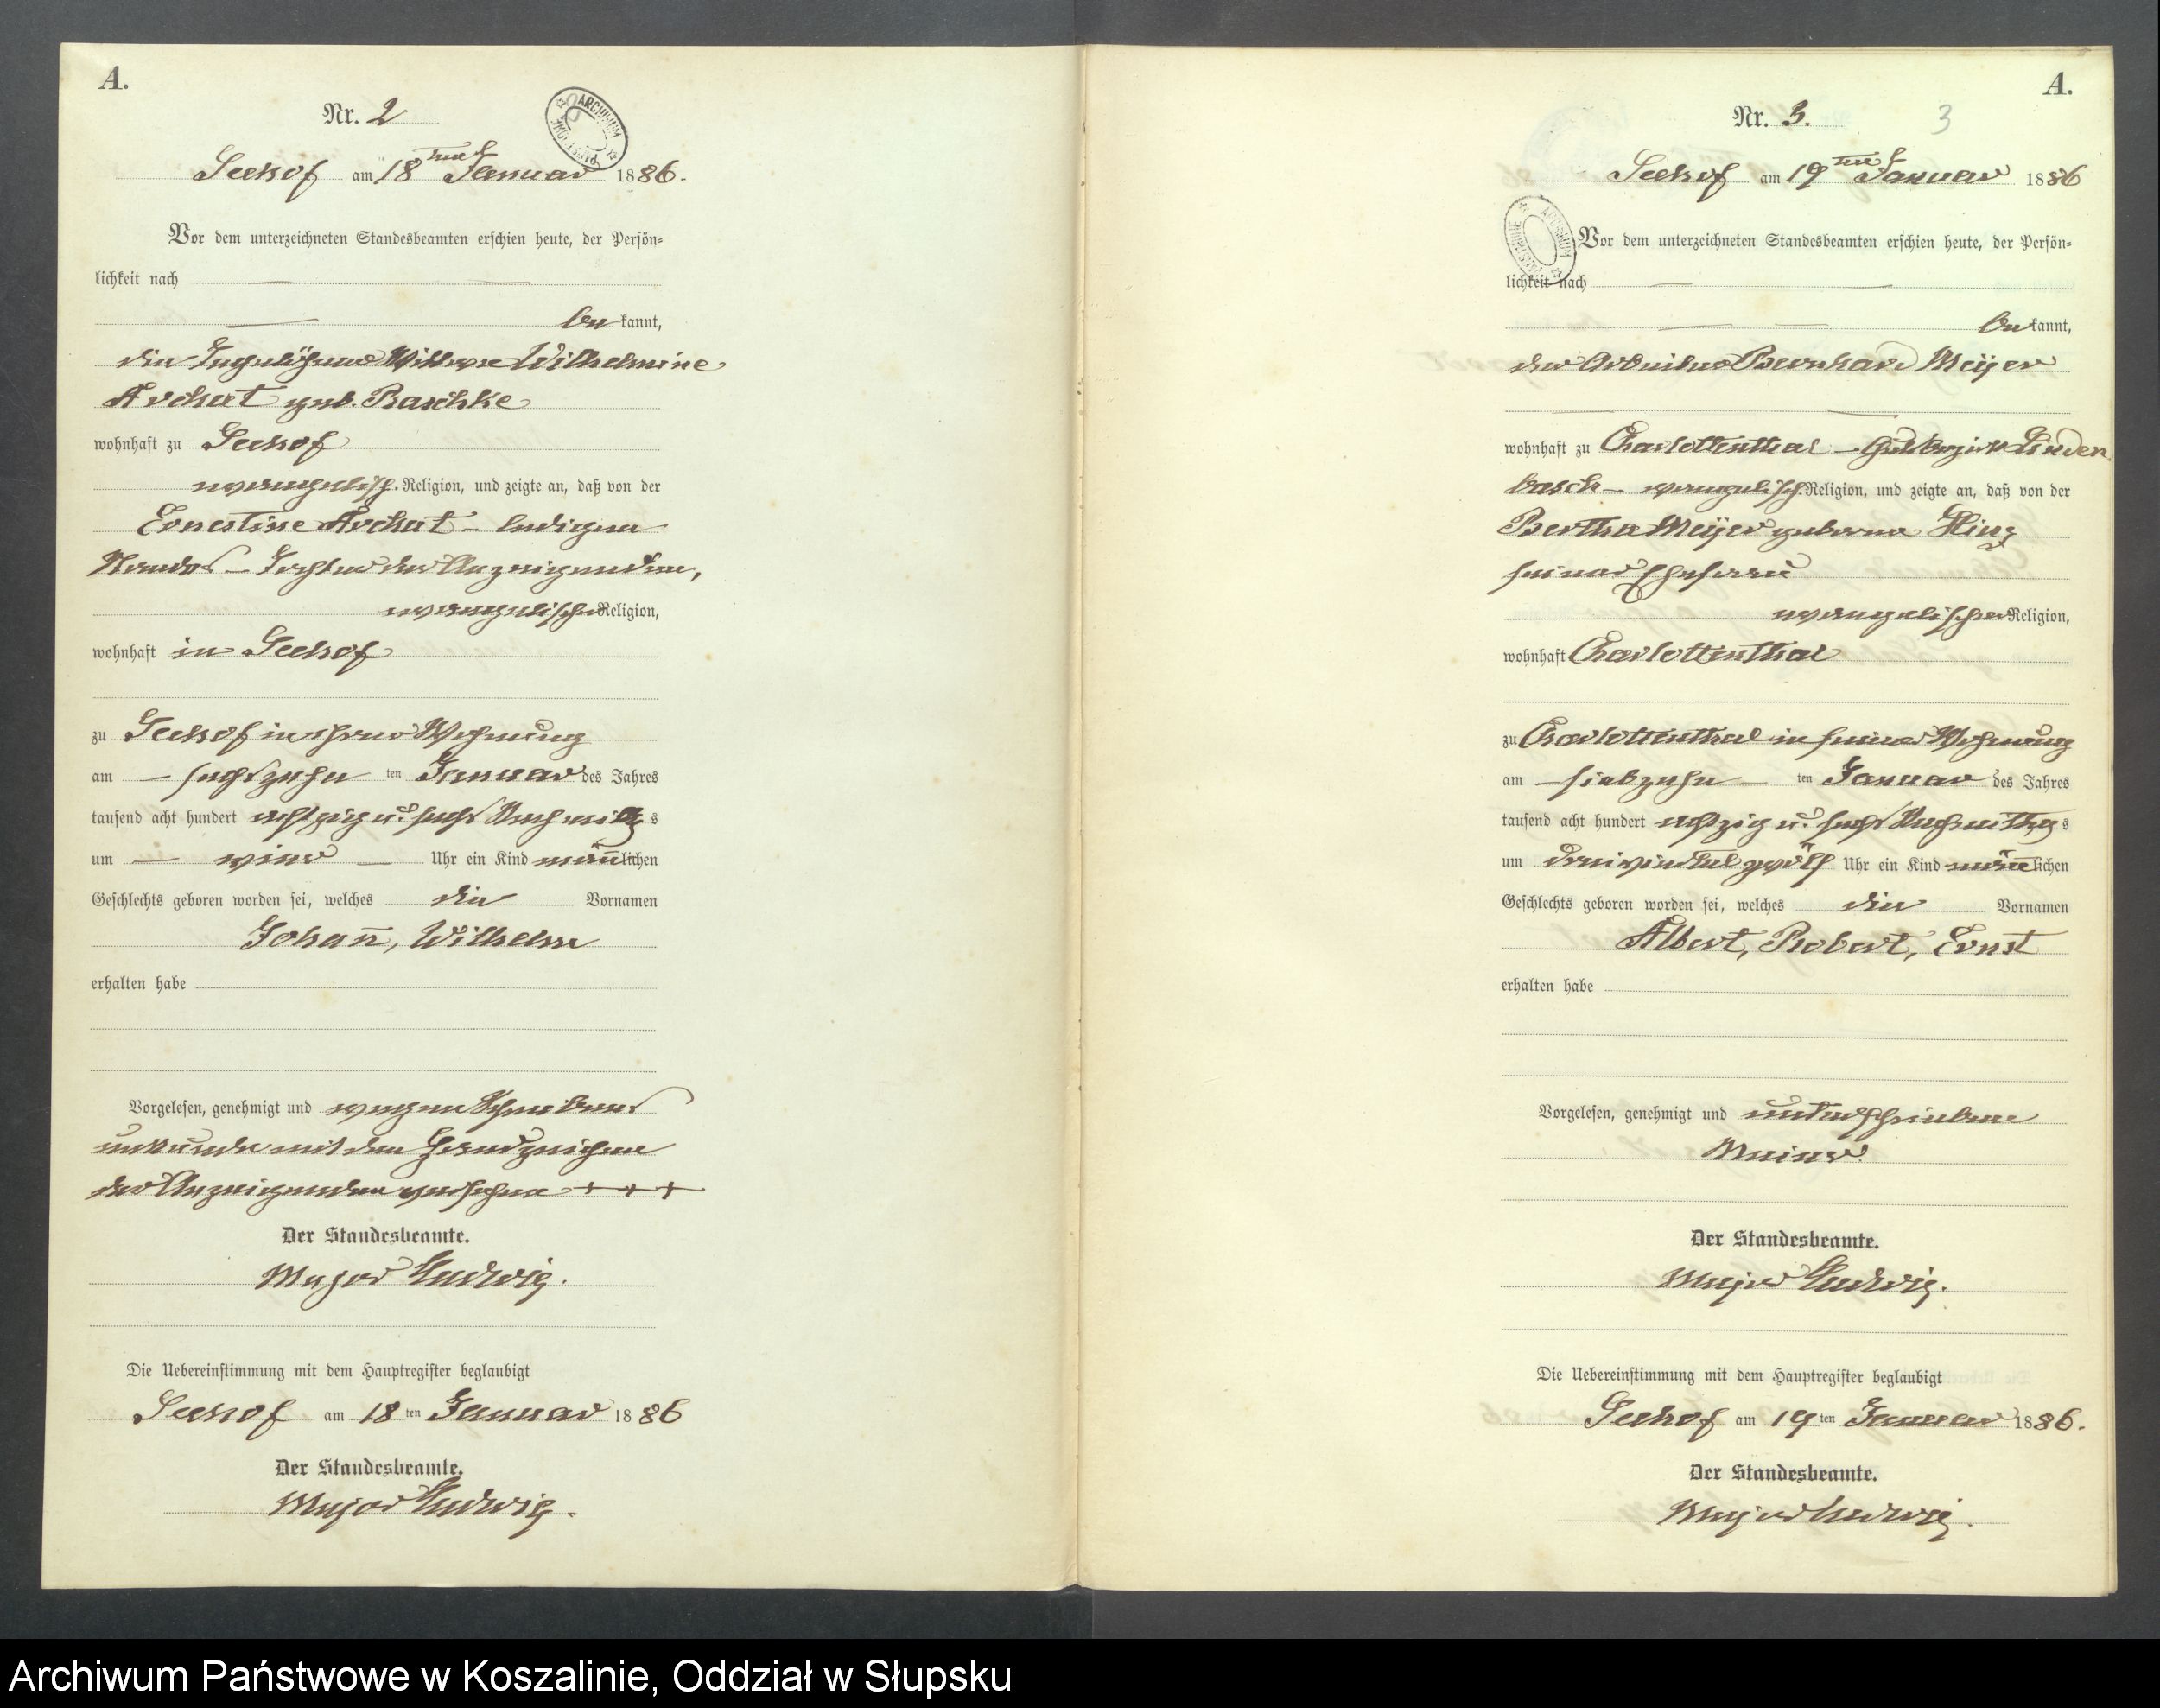 A.
Nr. 2
Seehof am 18ten Januar 1886.
Vor dem unterzeichneten Standesbeamten erschien heute, der Persön-
lichkeit nach
bekannt,
die Tagelöhner Wittwe Wilhelmine
Archut geb. Raschke
wohnhaft zu Seehof
evangelisch. Religion, und zeigte an, daß von der
Ernestine Archut – ledigen
Standes – Tochter der Anzeigenden,
evangelischer Religion,
wohnhaft in Seehof
zu Seehof in ihrer Wohnung
am – sechszehn ten Januar des Jahres
tausend acht hundert achtzig u. sechs Nachmittags
um – vier – Uhr ein Kind män̄lichen
Geschlechts geboren worden sei, welches die Vornamen
Johan̄, Wilhelm
erhalten habe
Vorgelesen, genehmigt und wegen Schreibens
unkunde mit den Handzeichen
der Anzeigenden versehen + + +
Der Standesbeamte.
Major Ludwig.
Die Uebereinstimmung mit dem Hauptregister beglaubigt
Seehof am 18 ten Januar 1886
Der Standesbeamte.
Major Ludwig.
A.
Nr. 3.
3
Seehof am 19ten Januar 1886
Vor dem unterzeichneten Standesbeamten erschien heute, der Persön-
lichkeit nach
bekannt,
der Arbeiter Bernhard Meÿer
wohnhaft zu Charlottenthal – Gutsbezirk Linden
busch – evangelisch. Religion, und zeigte an, daß von der
Bertha Meÿer geborne Hinz
seiner Ehefrau
evangelischer Religion,
wohnhaft Charlottenthal
zu Charlottenthal in seiner Wohnung
am – siebzehn – ten Januar des Jahres
tausend acht hundert achtzig u. sechs Nachmittags
um dreiviertel zwölf Uhr ein Kind män̄lichen
Geschlechts geboren worden sei, welches die Vornamen
Albert, Robert, Ernst
erhalten habe
Vorgelesen, genehmigt und unterschrieben
Meier
Der Standesbeamte.
Major Ludwig.
Die Uebereinstimmung mit dem Hauptregister beglaubigt
Seehof am 19 ten Januar 1886.
Der Standesbeamte.
Major Ludwig.
Archiwum Państwowe w Koszalinie, Oddział w Słupsku